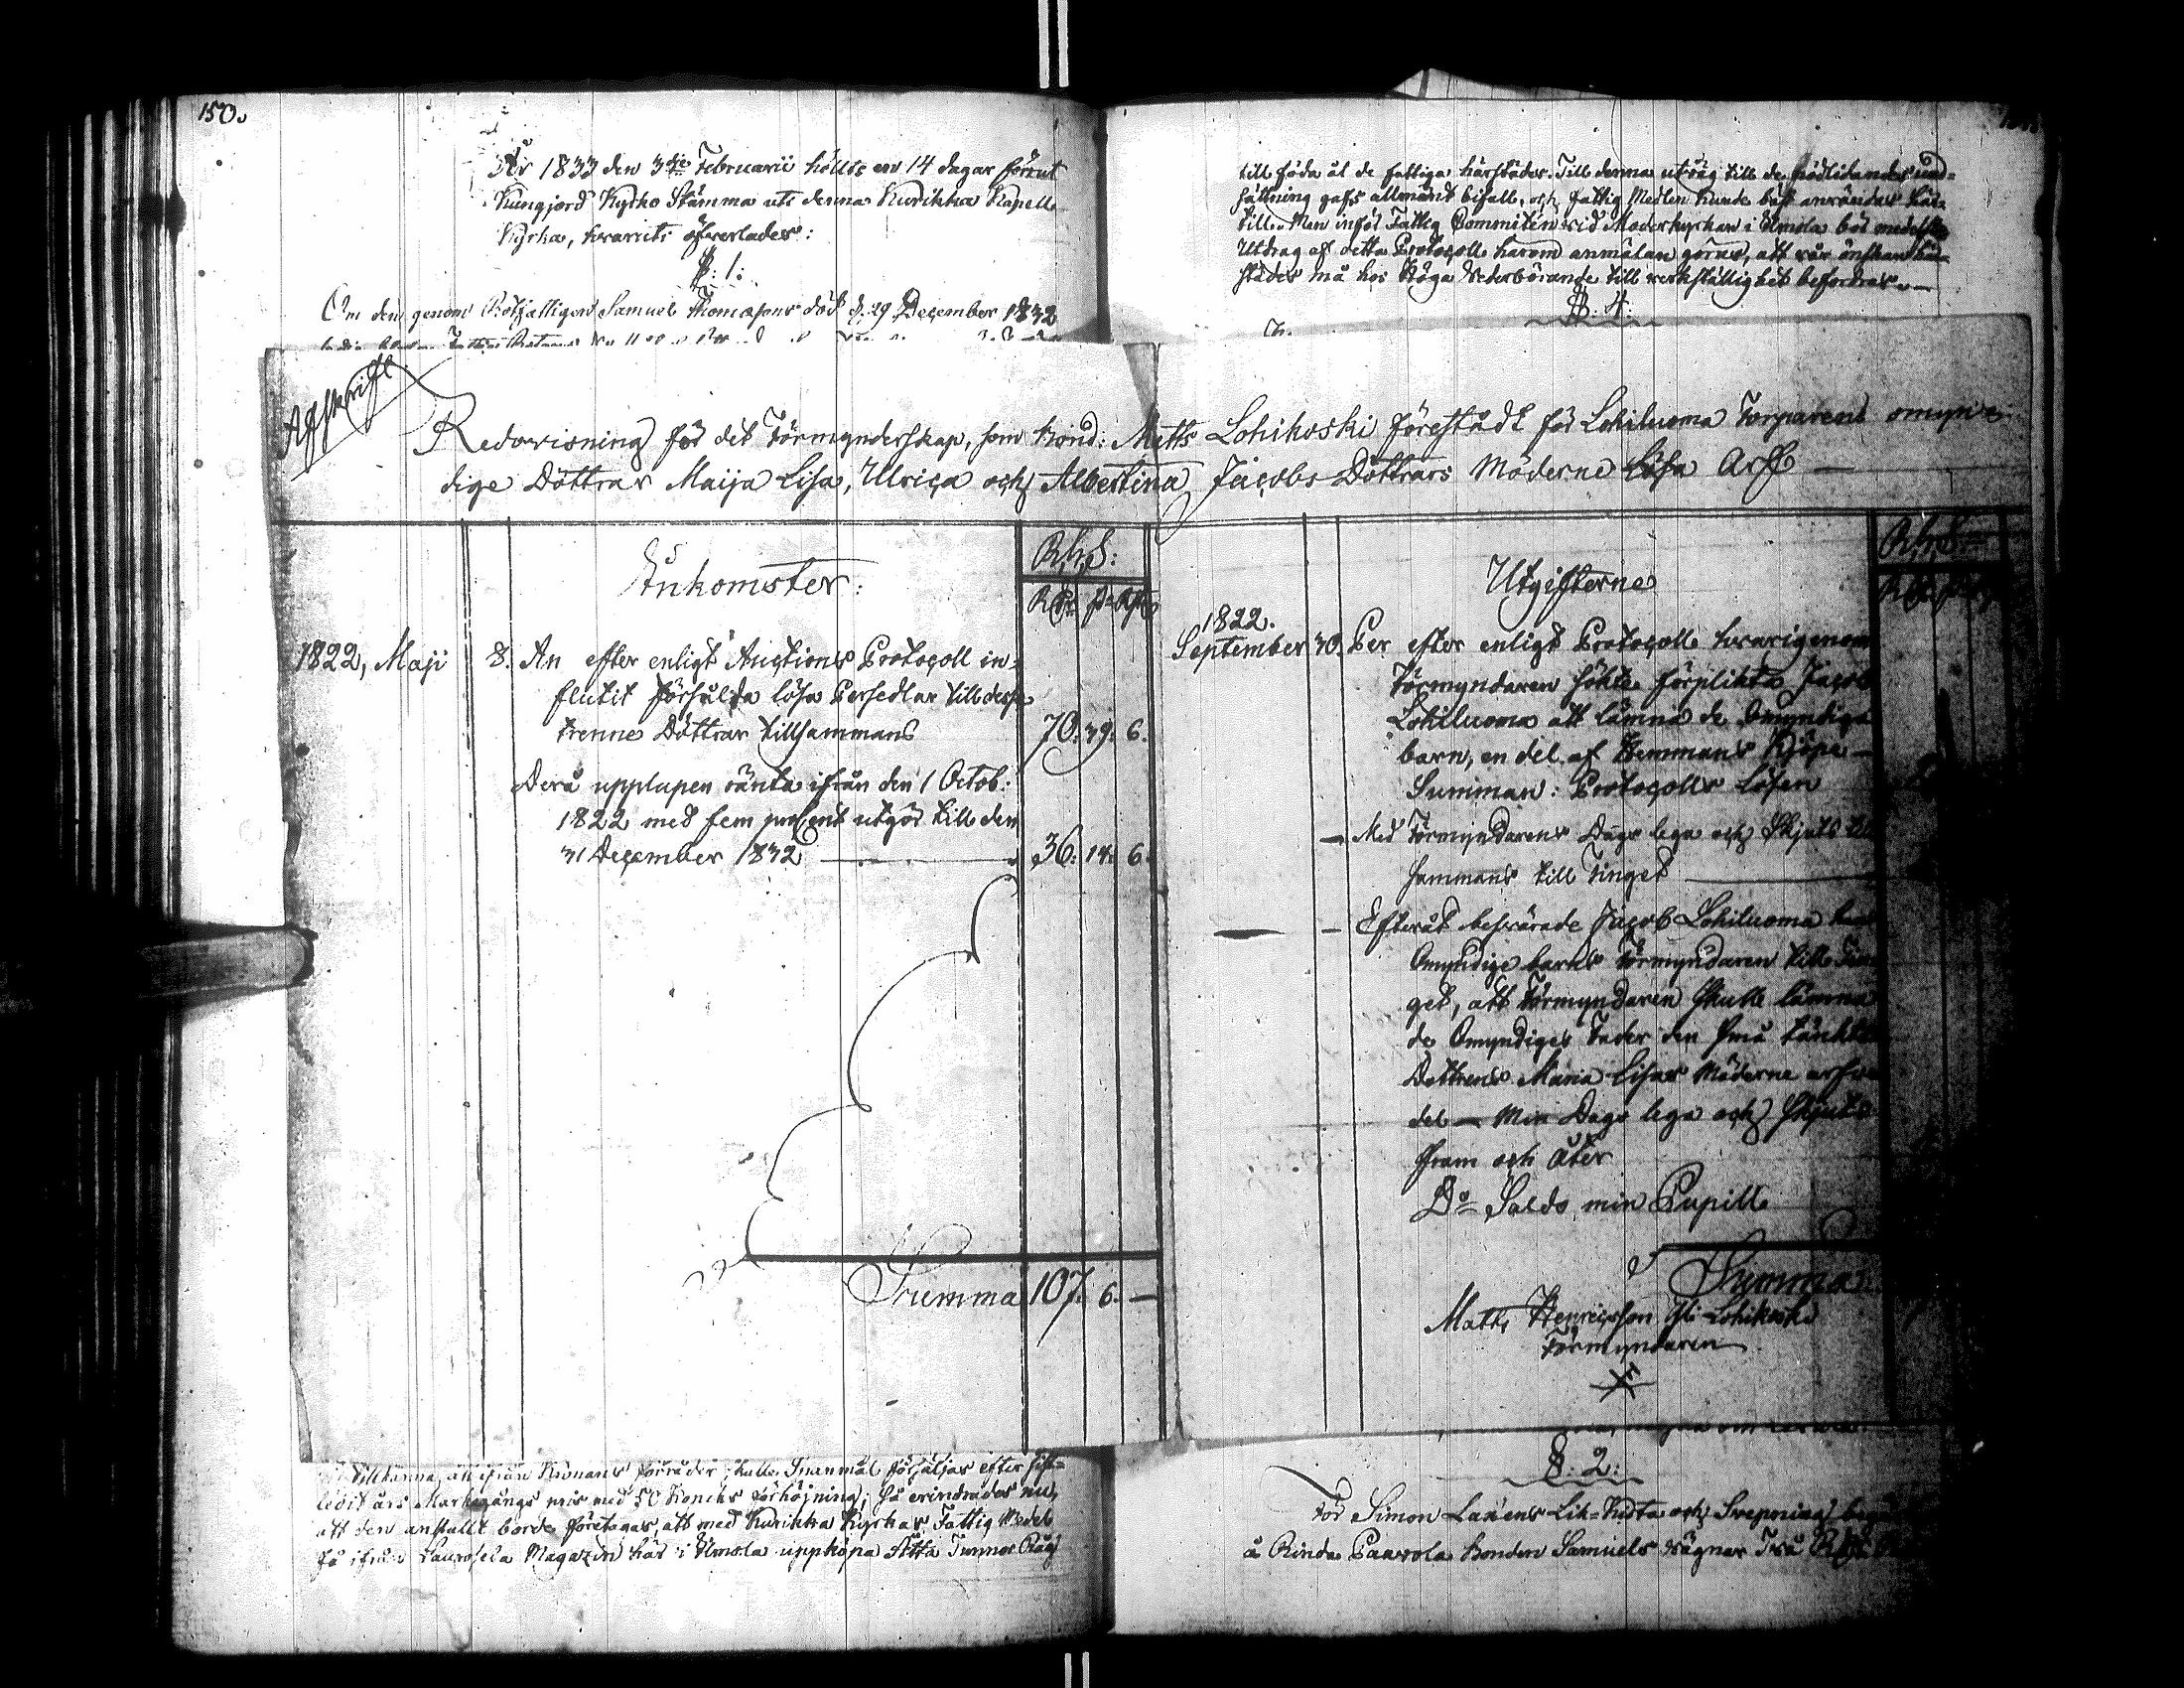 150.
År 1833 den 3die Februarii hölts en 14 dagar förut
Kungjord Kyrko Stämma uti denna Kurikka Kapells
Kyrka, hvarvid öfverlades:
§: 1:
Om den genom Rotfattigen Samuel Thomassons död d. 29 December 1832
till föda åt de fattiga härstädes. Till denna utväg till de nödlidandes und=
sättning gafs allmänt bifall, och fattig Medlen kunde bäst användas här=
till. Men inför Fattig Committén vid Moderkyrkan i Ilmola bör medelst
Utdrag af detta Protocoll härom anmälan göras, att vår önskan här=
städes må hos Höga Vederbörande till verkställighet befordras.
§: 4:
Afskrift
Redovisning för det Förmynderskap, som bond: Matts Lohikoski förestådt för Lohiluoma Torparens omyn=
dige Döttrar Maija Lisa, Ulrica och Albertina Jacobs Döttrars Möderne Lösa Arf
Inkomster:
R,h,S:
1822, Maji 8. An efter enligt Auctions Protocoll in=
flutit försålda lösa Persedlar till dessa
trenne Döttrar tillsammans 70: 39: 6.
Derå upplupen ränta ifrån den 1 Octob:
1822 med fem procent utgör till den
31 December 1832 36: 14: 6.
Summa 107. 6. —
Utgifterne
R,h,S:
1822.
September 30. Per efter enligt Protocoll hvarigenom
Förmyndaren sökte förplikta Jacob
Lohiluoma att lämna de Omyndiga
barn, en del af Hemmans Köpe
Summan: Protocolls Lösen
Med Förmyndarens Dags lega och Skjuts till
sammans till Tinget
Efteråt besvärade Jacob Lohiluoma
Omyndige barns Förmyndaren till Tin
get, att Förmyndaren skulle lämna
de Omyndiges Fader den
Dottrens Maria Lisas Möderne arfs
del — Min Dags lega och Skjuts
fram och åter
Do Saldo min Pupill
Summa
Matts Henricsson Yli Lohikoski
Förmyndaren
tillkänna, att ifrån Kronans förråder skulle Spannmål försäljas efter sist=
ledit års Markegångs pris med 50 Kopeks förhöjning; så erindrades nu,
att den anstallt borde företagas, att med Kurikka Kyrkas Fattig Medel
få ifrån Magazin här i Ilmola uppköpa Åtta Tunnor Råg
§: 2:
För Simon Lax'ens Lik=Kista och Svepning
å Rinda Paavola bonden Samuels vägnar Två